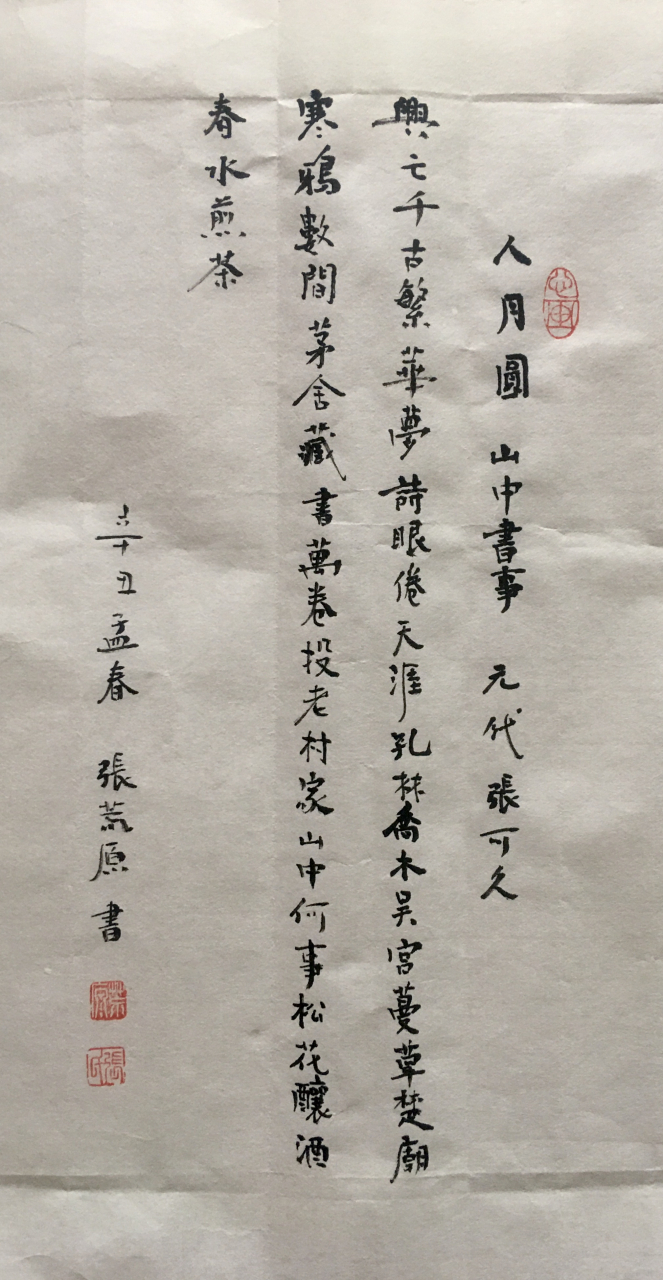 人月圓 山中書事 元代張可久
興亡千古繁華夢詩眼倦天涯孔林喬木吴宮蔓草楚廟
寒鴉數間茅舍藏書萬卷投老村家山中何事松花釀酒
春水煎茶
辛丑孟春 張荒原書
荒原
張氏